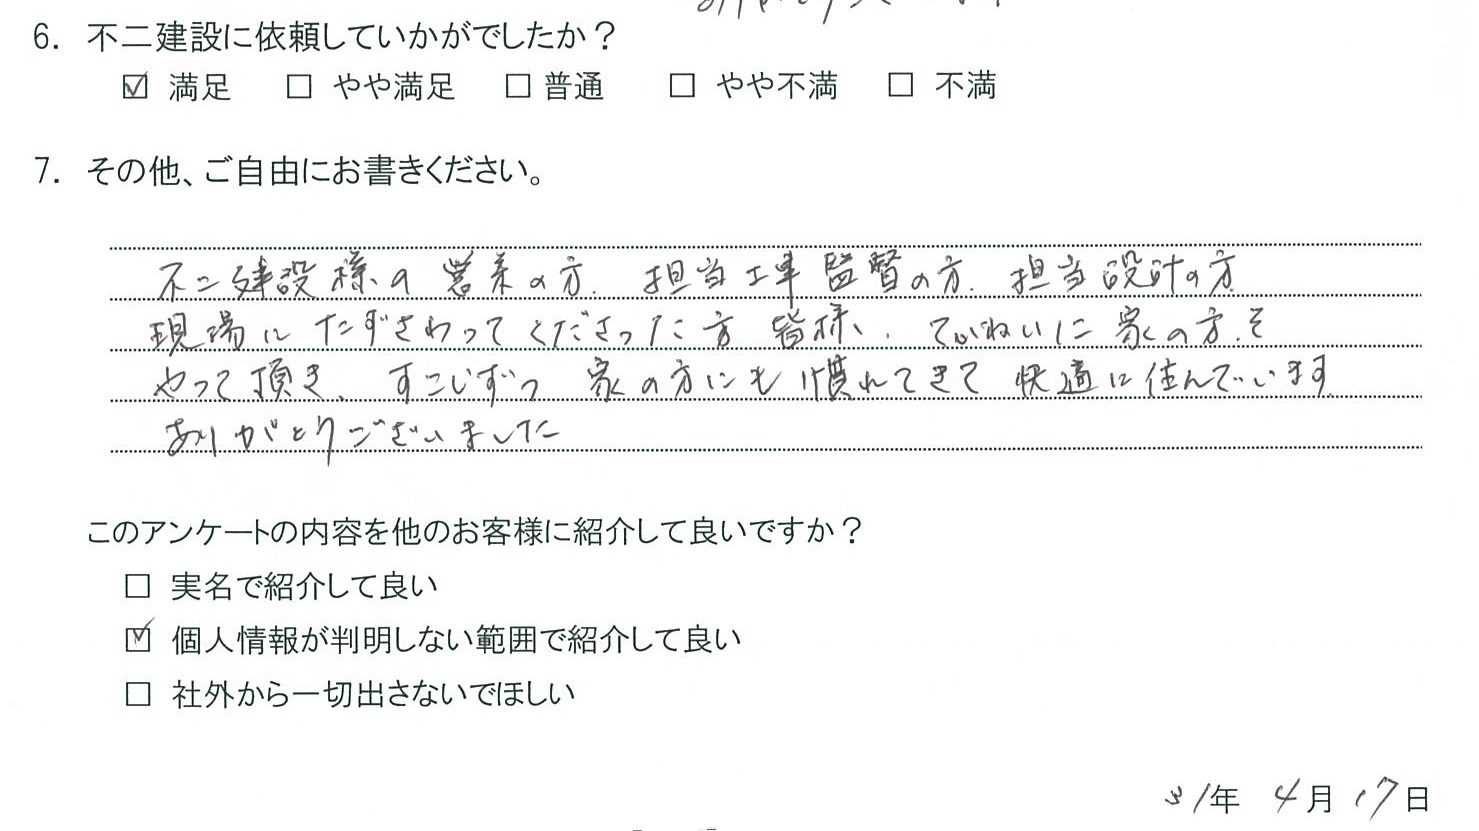 6. 不二建設に依頼していかがでしたか？
☑ 満足 □ やや満足 □ 普通 □ やや不満 □ 不満
7. その他、ご自由にお書きください。
不二建設様の営業の方、担当工事監督の方、担当設計の方
現場にたずさわってくださった方皆様、ていねいに家の方を
やって頂き、すこしずつ家の方にも慣れてきて快適に住んでいます。
ありがとうございました
このアンケートの内容を他のお客様に紹介して良いですか？
□ 実名で紹介して良い
☑ 個人情報が判明しない範囲で紹介して良い
□ 社外から一切出さないでほしい
31年 4月 17日